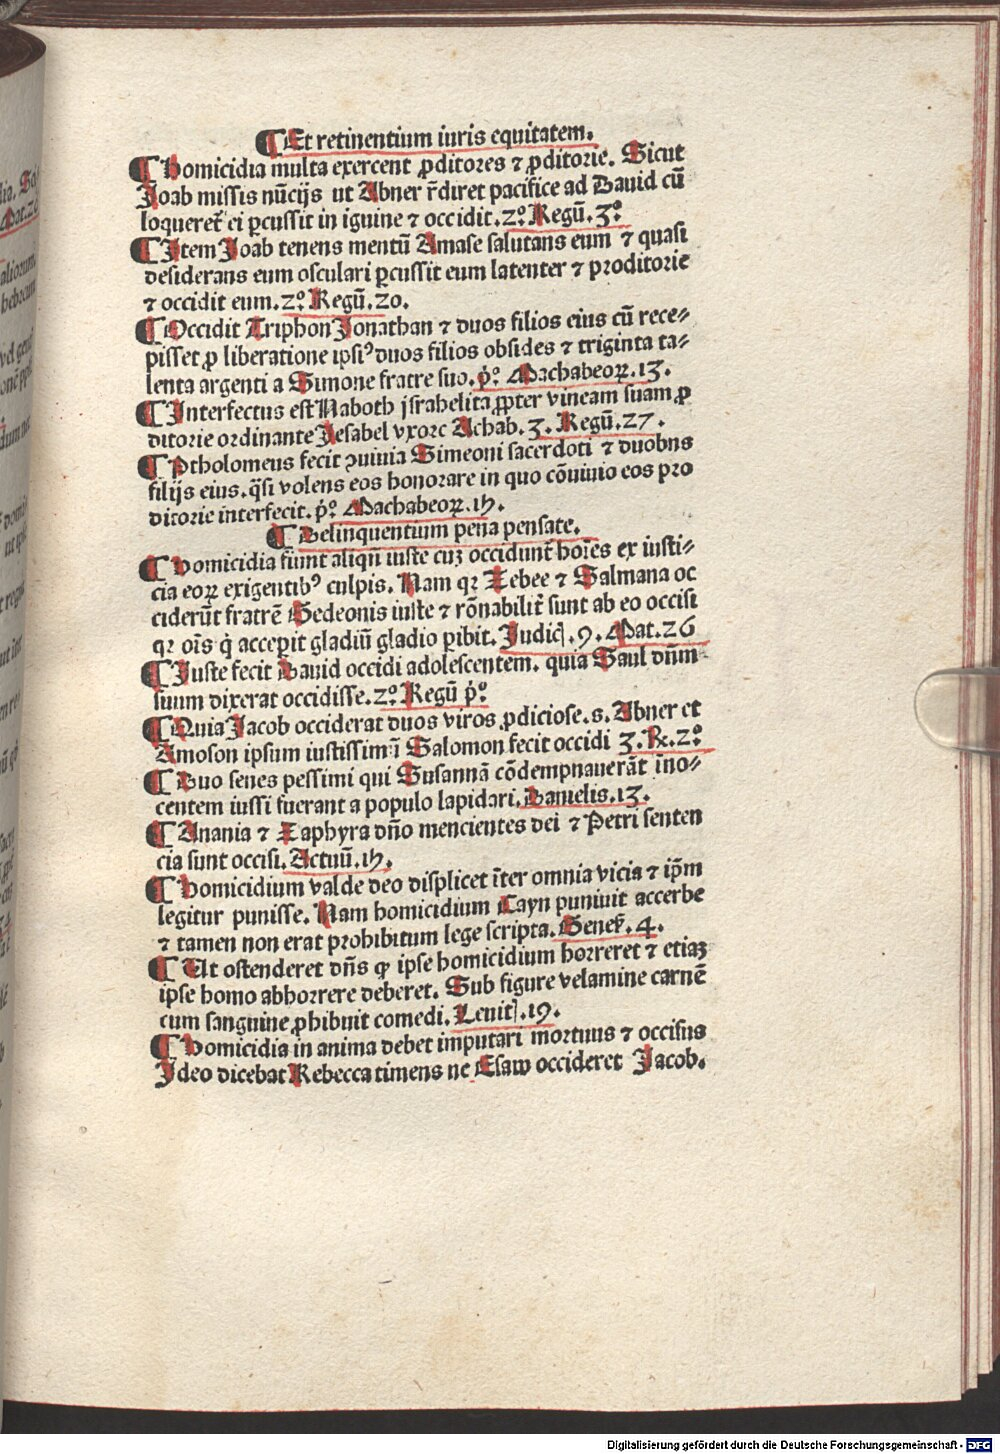 ¶ Et retinentium iuris equitatem.
¶ Homicidia multa exercent ꝓditores ⁊ ꝓditorie. Sicut
Joab missis nūcijs ut Abner r̄diret pacifice ad Dauid cū
loqueret̄ ei ꝑcussit in iguine ⁊ occidit. 2º Regū. 3º
¶ Item Joab tenens mentū Amase salutans eum ⁊ quasi
desiderans eum osculari ꝑcussit eum latenter ⁊ proditorie
⁊ occidit eum. 2º Regū. 20.
¶ Occidit Triphon Jonathan ⁊ duos filios eius cū rece⸗
pisset ꝓ liberatione ipsiꝰ duos filios obsides ⁊ triginta ta⸗
lenta argenti a Simone fratre suo. p̊º Machabeoꝝ. 13.
¶ Interfectus est Naboth jsrahelita ꝓpter vineam suam ꝓ
ditorie ordinante Jesabel vxore Achab. 3. Regū. 27.
¶ Ptholomeus fecit ↄuiuia Simeoni sacerdoti ⁊ duobus
filijs eius. q̄si volens eos honorare in quo cōuiuio eos pro
ditorie interfecit. p̊º Machabeoꝝ. 1h.
¶ Delinquentium pena pensate.
¶ Homicidia fiunt aliqn̄ iuste cuꝫ occidunt̄ hoīes ex iusti⸗
cia eoꝝ exigentibꝰ culpis. Nam qꝛ Zebee ⁊ Salmana oc
ciderūt fratrē Gedeonis iuste ⁊ rōnabilit̄ sunt ab eo occisi
qꝛ oīs q̇ acceꝑit gladiū gladio ꝑibit. Judiĉ. 9. Mat. 26
¶ Iuste fecit Dauid occidi adolescentem. quia Saul dn̄m
suum dixerat occidisse. 2º Regū p̊º
¶ Quia Jacob occiderat duos viros ꝓdiciose. s. Abner et
Amoson ipsum iustissim ī Salomon fecit occidi 3. R̄. 2º
¶ Duo senes pessimi qui Susannā cōdempnauerāt īno⸗
centem iussi fuerant a populo lapidari. Danielis. 13.
¶ Anania ⁊ Zaphyra dn̄o mencientes dei ⁊ Petri senten
cia sunt occisi. Actuū. 1h.
¶ Homicidium valde deo displicet īter omnia vicia ⁊ ip̄m
legitur punisse. Nam homicidium Cayn puniuit accerbe
⁊ tamen non erat prohibitum lege scripta. Geneẜ. 4.
¶ Ut ostenderet dn̄s ꝙ ipse homicidium horreret ⁊ etiaꝫ
ipse homo abhorrere deberet. Sub figure velamine carnē
cum sanguine ꝓhibuit comedi. Leuit̄. 19.
¶ Homicidia in anima debet imputari mortuus ⁊ occisus
Ideo dicebat Rebecca timens ne Esaw occideret Jacob.
Digitalisierung gefördert durch die Deutsche Forschungsgemeinschaft - DFG